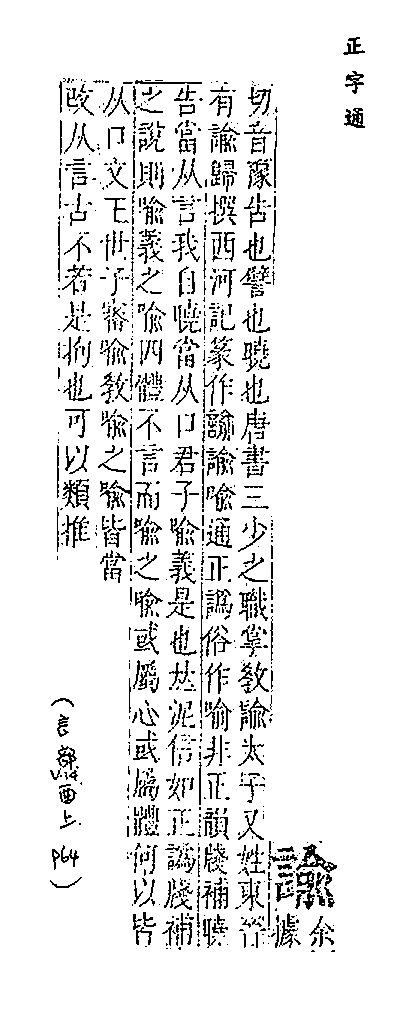 正字通
諭
余
據
切音豫告也譬也曉也唐書三少之職掌敎諭太子又姓東晉
有諭歸撰西河記篆作諭諭喻通正譌俗作喻非正韻牋補曉
告當从言我自曉當从口君子喻義是也𠀤泥信如正譌牋補
之說則喻義之喻四體不言而喻之喻或屬心或屬體何以皆
从口文王世子審喻敎喻之喻皆當
改从言古不若是拘也可以類推
（言部酉上 P64）